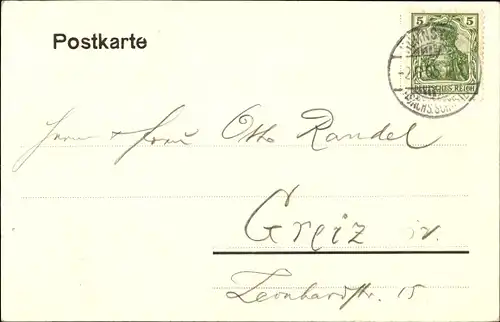 Postkarte
5 5
DEUTSCHES REICH
Herrn & Frau Otto Randel
Greiz i/V.
Leonhardtstr. 15